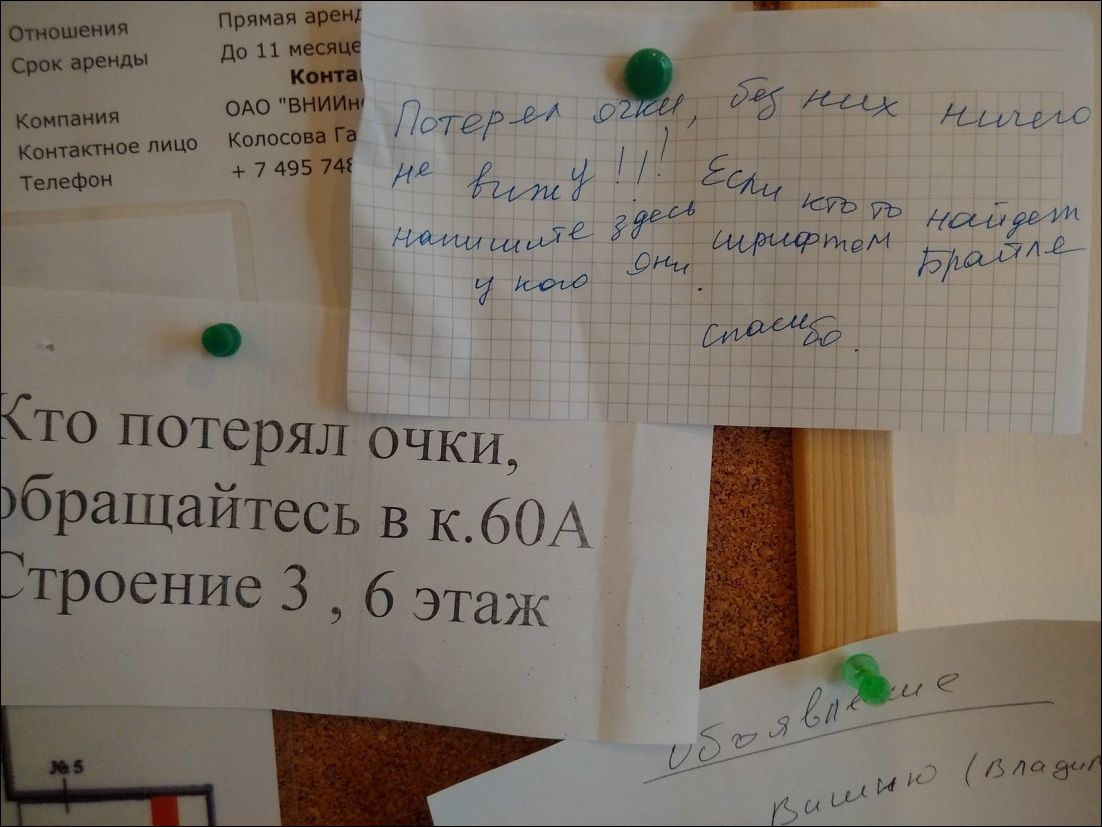 Отношения Прямая аренд
Срок аренды До 11 месяце
Конта
Компания ОАО "ВНИИн
Контактное лицо Колосова Га
Телефон + 7 495 748
Потерял очки, без них ничего
не вижу!!! Если кто то найдет
напишите здесь шрифтом Брайле
у кого они.
спасибо.
Кто потерял очки,
обращайтесь в к.60А
Строение 3 , 6 этаж
№ 5
Объявление
Вишню (Владим